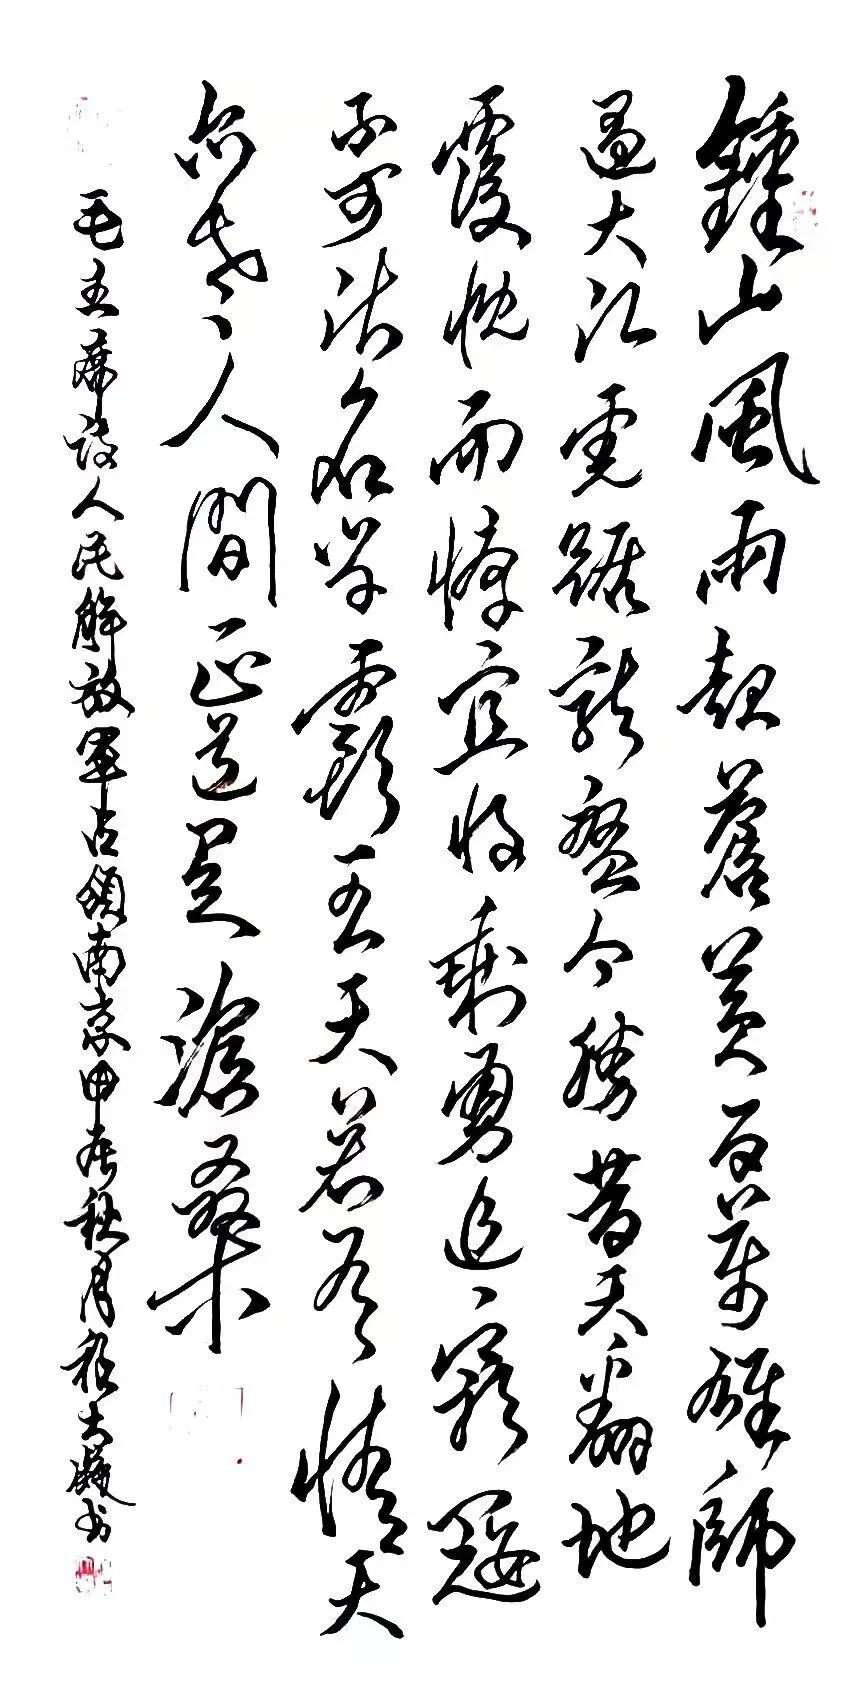 鍾山風雨起蒼黃百萬雄師
過大江虎踞龍盤今勝昔天翻地
覆慨而慷宜將剩勇追窮寇
不可沽名學霸王天若有情天
亦老人間正道是滄桑
毛主席詩人民解放軍占領南京甲辰秋月書